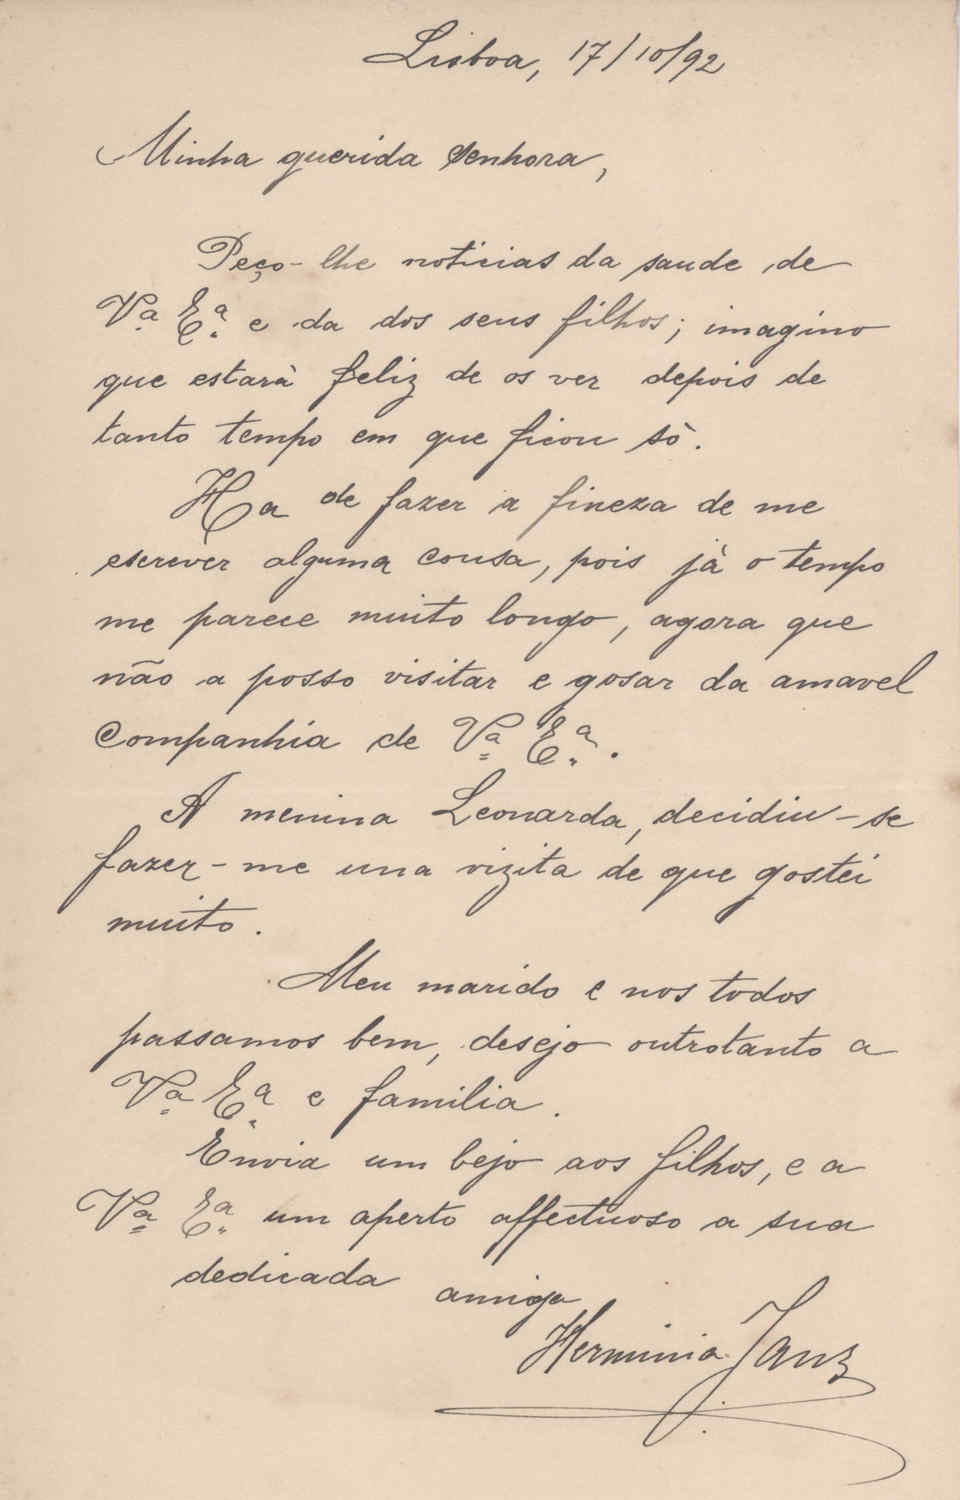 Lisboa, 17/10/92
Minha querida Senhora,
Peço-lhe noticias da saude de
Vª Eª e da dos seus filhos; imagino
que estarà feliz de os ver depois de
tanto tempo em que ficou sò.
Ha de fazer a fineza de me
escrever alguma cousa, pois jà o tempo
me parece muito longo, agora que
não a posso visitar e gosar da amavel
Companhia de Vª Eª.
A menina Leonarda, decidiu-se
fazer-me una vizita de que gostei
muito.
Meu marido e nos todos
passamos bem, desejo outrotanto a
Vª Eª e familia.
Envia um bejo aos filhos, e a
Vª Eª um aperto affectuoso a sua
dedicada amiga
Herminia